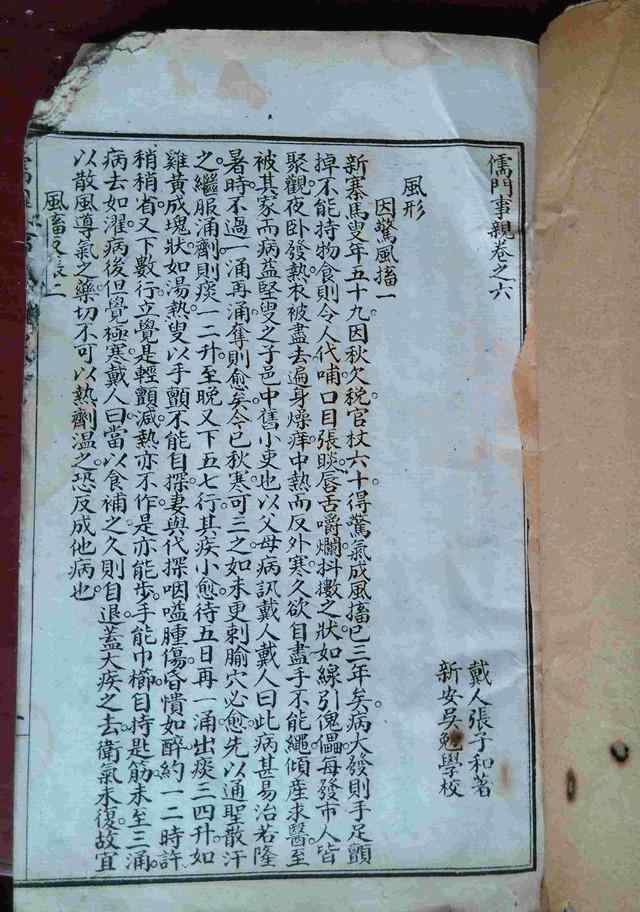 儒門事親卷之六
戴人張子和著
新安吳勉學校
風形
因驚風搐一
新寨馬叟年五十九因秋欠稅官杖六十得驚氣成風搐已三年矣病大發則手足顫
掉不能持物食則令人代哺口目張睒唇舌嚼爛抖擻之狀如線引傀儡每發市人皆
聚觀夜卧發熱衣被盡去遍身燥痒中熱而反外寒久欲自盡手不能繩傾産求醫至
被其家而病益堅叟之子邑中舊小吏也以父母病訊戴人戴人曰此病甚易治若隆
暑時不過一涌再涌奪則愈矣今已秋寒可三之如未更刺腧穴必愈先以通聖散汗
之繼服涌劑則痰一二升至晚又下五七行其疾小愈待五日再一涌出痰三四升如
雞黃成塊狀如湯熱叟以手顫不能自探妻與代探咽嗌腫傷昏憒如醉約一二時許
稍稍省又下數行立覺足輕顫減熱亦不作是亦能步手能巾櫛自持匙筋未至三涌
病去如濯病後但覺極寒戴人曰當以食補之久則自退蓋大疾之去衛氣未復故宜
以散風導氣之藥切不可以熱劑溫之恐反成他病也
風搐反張二